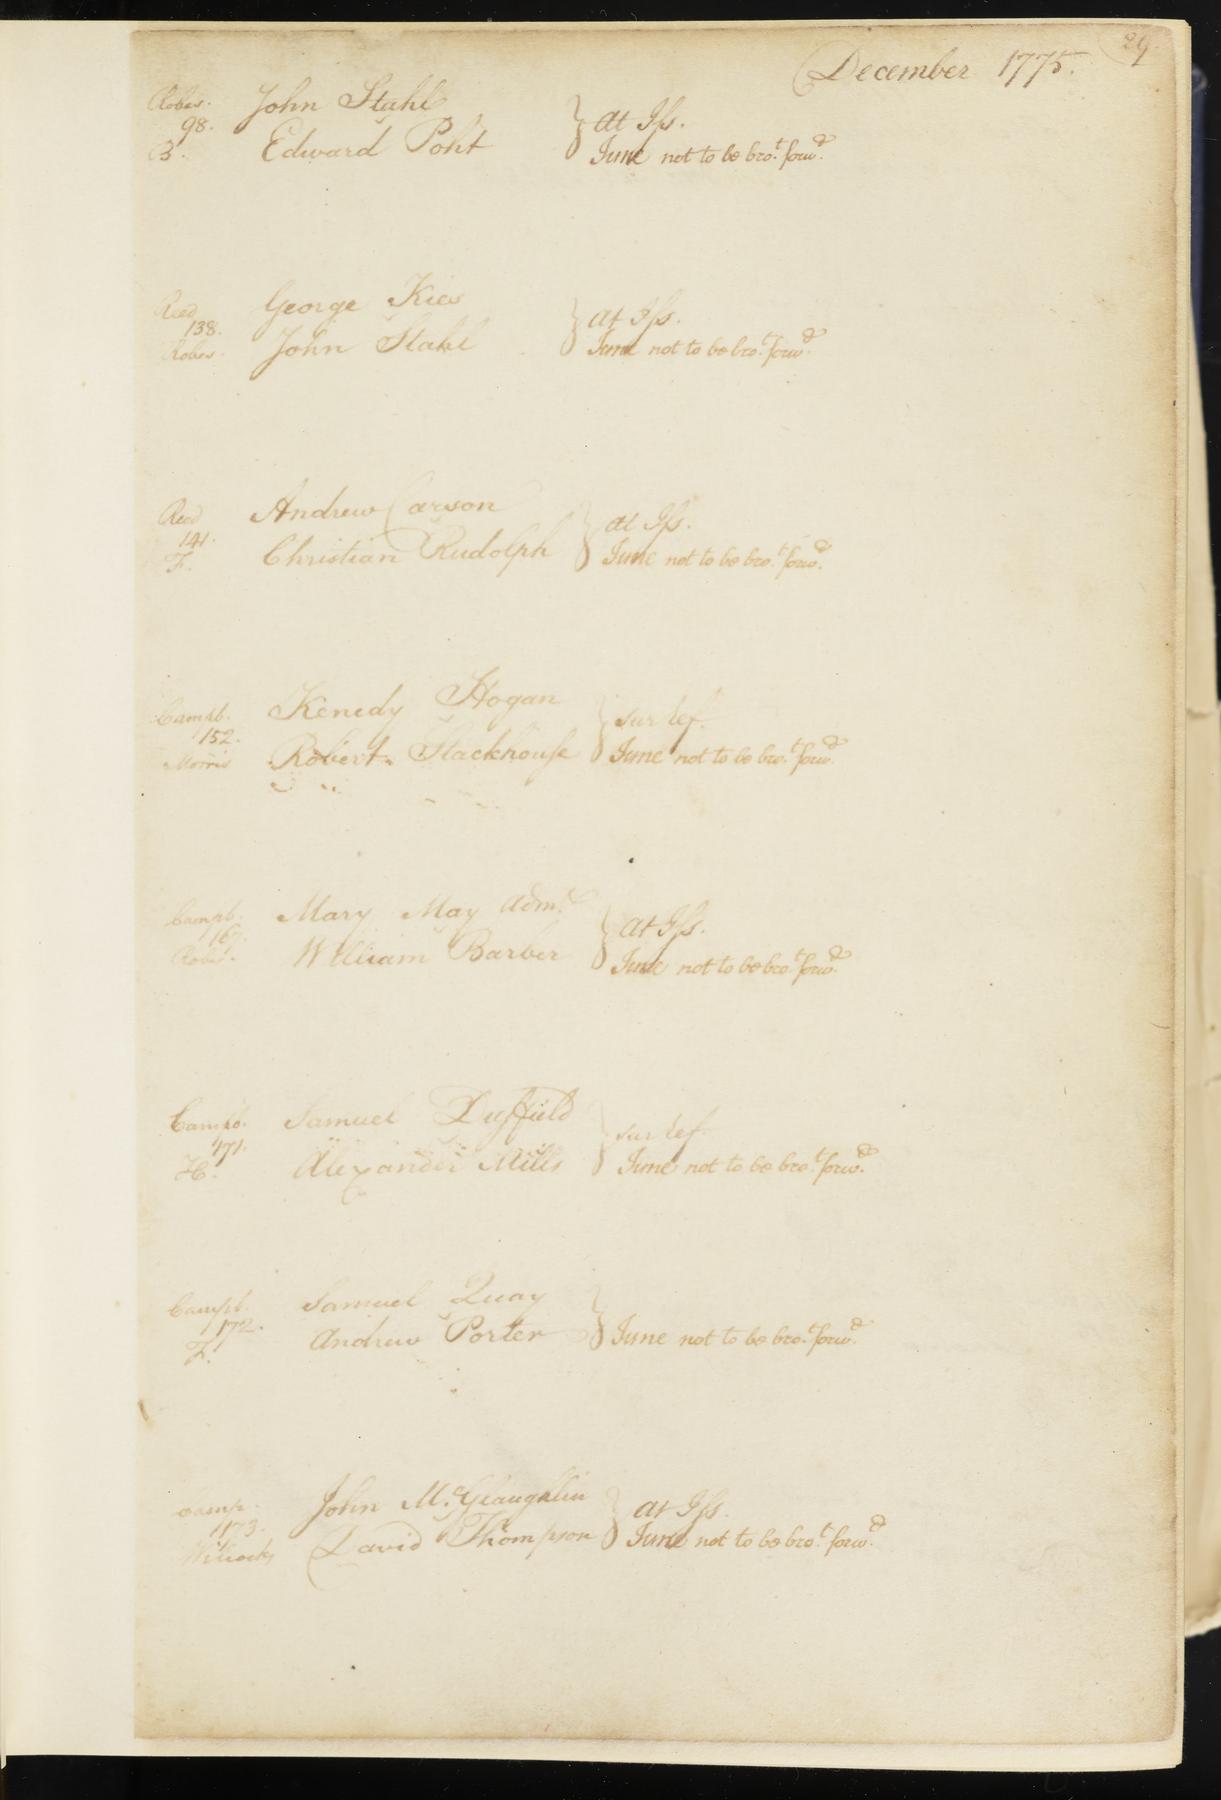 29.
December 1775.
Robes. John Stahl } at Iſs.
98.
B. Edward Poht June not to be bro.t forw.d
Reed George Kies } at Iſs.
138.
Robes. John Stahl June not to be bro.t forw.d
Reed Andrew Carson } at Iſs.
141.
F. Christian Rudolph June not to be bro.t forw.d
Campb. Kenedy Hogan } sur
152.
Morris Robert Stackhouſe June not to be bro.t forw.d
Campb. Mary May adm.x } at Iſs.
Robes. William Barber June not to be bro.t forw.d
Campb. Samuel Duffield } sur
171.
H. Alexander Mills June not to be bro.t forw.d
Campb. Samuel Quay }
172.
F. Andrew Porter June not to be bro.t forw.d
Camp. John M.cGlaughlin } at Iſs.
173.
Wilcocks David Thompson June not to be bro.t forw.d